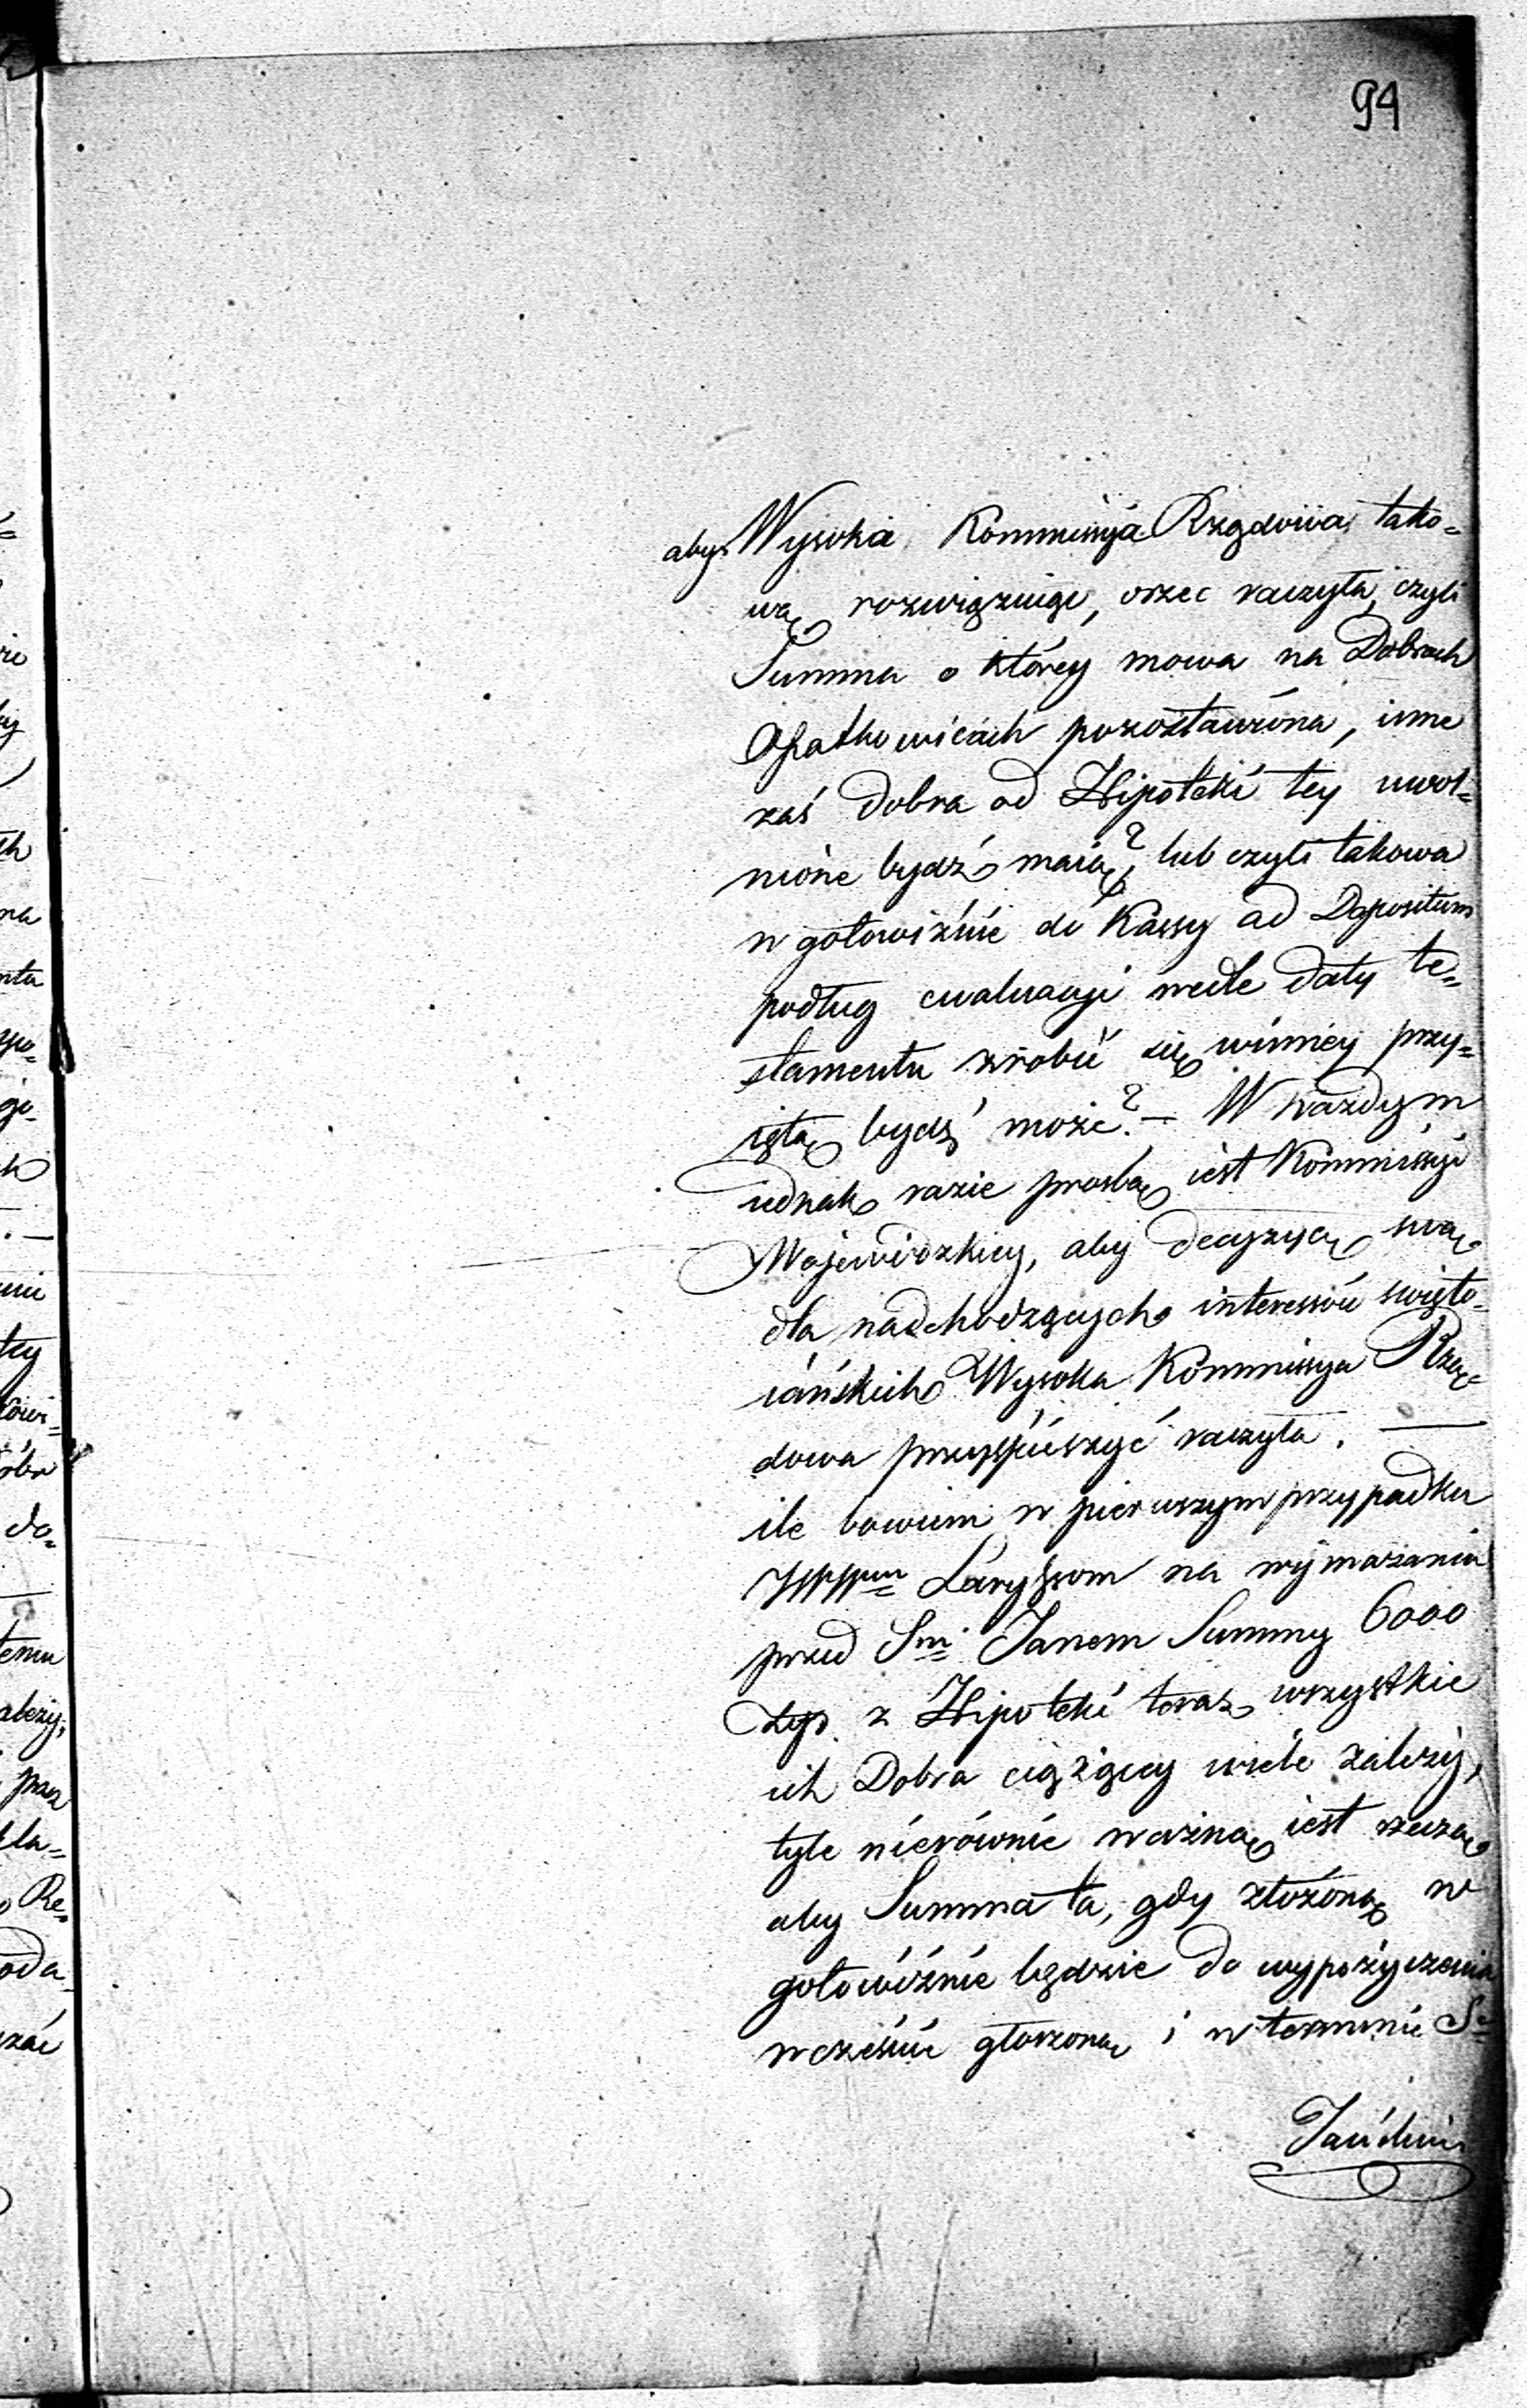 94
aby Wysoka Kommissya Rządowa tako-
wą rozwiązując, orzec raczyła, czyli
Summa o którey mowa na Dobrach
Opatkowicach pozostawiona, inne
zaś Dobra od Hipoteki tey uwol-
nione bydź maią? lub czyli takowa
w gotowiźnie do Kassy ad Depositum
podług ewaluacyi wedle daty te-
stamentu zrobić się winney przy-
iętą bydź może? — W każdym
iednak razie prośbą iest Kommissyi
Wojewódzkiey, aby decyzyą swą
dla nadchodzących interessów święto-
iańskich Wysoka Kommissya Rzą-
dowa przyspieszyć raczyła. —
ile bowiem w pierwszym przypadku
Laryssom na wymazaniu
przed Sm Janem Summy 6000
złp. z Hipoteki teraz wszystkie
ich Dobra ciążącey wiele zależy,
tyle nierównie ważną iest rzeczą
aby Summa ta, gdy złożoną w
gotowiźnie będzie do wypożyczenia
wcześnie głoszoną i w terminie S